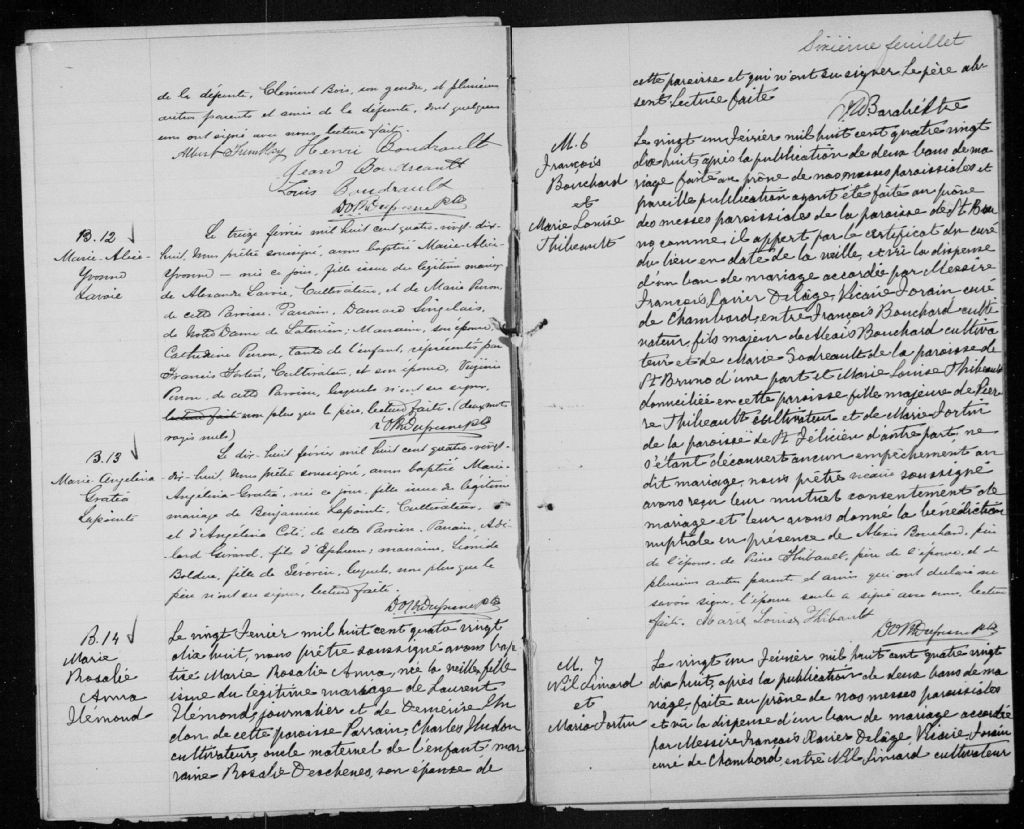 de la défunte, Clément Bois, son gendre, et plusieurs
autres parents et amis de la défunte, dont quelques
uns ont signé avec nous, lecture faite.
Albert Tremblay Henri Boudreault
Jean Boudreault
Louis Boudreault
D.O.R. Dufresne Ptre
B. 12
Marie-Alice-
Yvonne
Lavoie
Le treize février mil huit cent quatre-vingt-dix-
huit, Nous prêtre soussigné, avons baptisé Marie-Alice-
Yvonne - née ce jour, fille issue du légitime mariage
de Alexandre Lavoie, Cultivateur, et de Marie Perron,
de cette Paroisse. Parrain, Damase Singelais,
de Notre Dame de Laterrière; Marraine, son épouse,
Catherine Perron, tante de l'enfant, représentés par
Francis Fortin, Cultivateur, et son épouse, Virginie
Perron, de cette Paroisse, lesquels n'ont su signer,
lecture faite non plus que le père, lecture faite. (deux mots
rayés nuls)
D.O.R. Dufresne Ptre
B. 13
Marie-Angelina
Gratia
Lapointe
Le dix-huit février mil huit cent quatre-vingt-
dix-huit, Nous prêtre soussigné, avons baptisé Marie-
Angelina-Gratia, née ce jour, fille issue du légitime
mariage de Benjamin Lapointe, Cultivateur,
et d'Angélina Coté, de cette Paroisse, Parrain,
lard Girard, fils d'Ephrem; marraine, Léonide
Bolduc, fille de Séverin, lesquels, non plus que le
père n'ont su signer, lecture faite.
D.O.R. Dufresne Ptre
B. 14
Marie
Rosalie
Anna
Hémond
Le vingt Fevrier mil huit cent quatre vingt
dix huit, nous prêtre soussigné avons bap
tisé Marie Rosalie Anna, née la veille, fille
issue du légitime mariage de Laurent
Hémond, journalier et de Démerise Hu
don de cette paroisse Parrain, Charles Hudon
cultivateur, oncle maternel de l'enfant mar
raine Rosalie Deschenes, son épouse de
Sixième feuillet
cette paroisse et qui n'ont su signer. Le père ab
sent. Lecture faite
M. 6
François
Bouchard
et
Marie Louise
Thibeault
Le vingt un Février mil huit cent quatre vingt
dix huit, après la publication de deux bans de ma
riage faite au prône de nos messes paroissiales et
pareille publication ayant été faite au prône
des messes paroissiales de la paroisse de St Bru
no, comme il appert par le certificat du curé
du lieu en date de la veille, et vû la dispense
d'un ban de mariage accordée par Messire
François Xavier Delâge, Vicaire Forain curé
de Chambord, entre François Bouchard culti
vateur, fils majeur de Alexis Bouchard cultiva
teur et de Marie Godreault de la paroisse de
St Bruno d'une part et Marie Louise Thibeault
domiciliée en cette paroisse fille majeure de Pier
re Thibeault cultivateur et de Marie Fortin
de la paroisse de St Félicien d'autre part, ne
s'étant découvert aucun empêchement au
dit mariage, nous prêtre vicaire soussigné
avons reçu leur mutuel consentement de
mariage et leur avons donné la bénédiction
nuptiale en présence de Alexis Bouchard, père
de l'époux, de Pierre Thibault, père de l'épouse, et de
plusieurs autres parents et amis qui ont déclaré ne
savoir signer, l'épouse seule a signé avec nous, lecture
faite. Marie Louise Thibault
D.O.R. Dufresne Ptre
M. 7
Nil Simard
et
Marie Fortin
Le vingt un Février mil huit cent quatre vingt
dix huit, après la publication de deux bans de ma
riage, faite au prône de nos messes paroissiales
et vû la dispense d'un ban de mariage accordée
par Messire François Xavier Delâge, Vicaire Forain
curé de Chambord, entre Nil Simard cultivateur